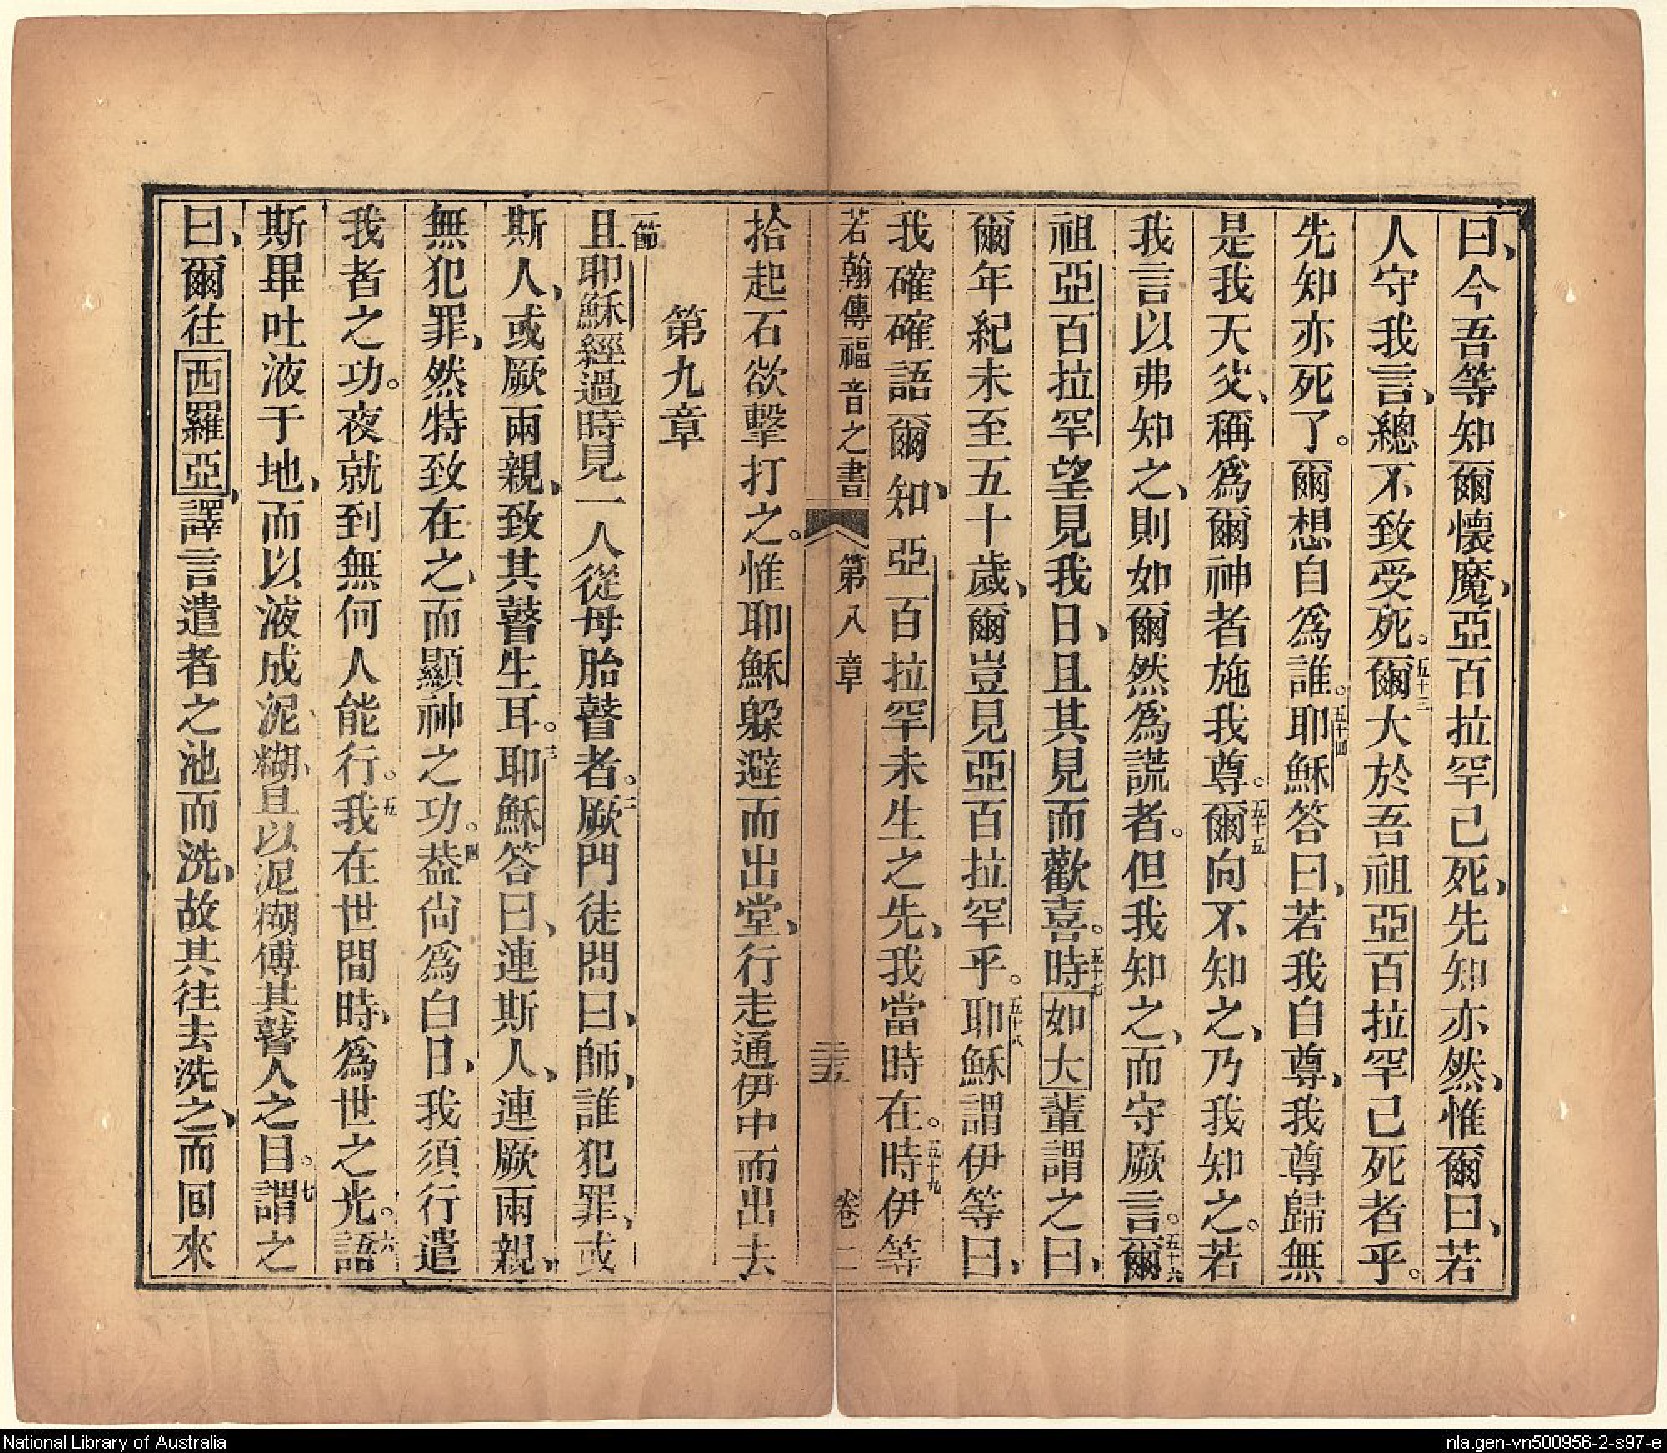 曰、今吾等知爾懷魔、亞百拉罕已死、先知亦然、惟爾曰、若
人守我言、總不致受死。五十三爾大於吾祖亞百拉罕已死者乎。
先知亦死了。爾想自爲誰。五十四耶穌答曰、若我自尊、我尊歸無
是我天父、稱爲爾神者施我尊。五十五爾向不知之、乃我知之。若
我言以弗知之、則如爾然爲謊者。但我知之、而守厥言。五十六爾
祖亞百拉罕望見我日、且其見而歡喜。五十七時如大輩謂之曰、
爾年紀未至五十歲、爾豈見亞百拉罕乎。五十八耶穌謂伊等曰、
我確確語爾知、亞百拉罕未生之先、我當時在。五十九時伊等
若翰傳福音之書 第八章 三十五 卷二
拾起石欲擊打之。惟耶穌躲避而出堂、行走通伊中而出去
第九章
一節且耶穌經過時見一人從母胎瞽者。二厥門徒問曰、師、誰犯罪、或
斯人、或厥兩親、致其瞽生耳。三耶穌答曰、連斯人、連厥兩親、
無犯罪、然特致在之、而顯神之功。四葢尙爲白日、我須行遣
我者之功。夜就到無何人能行。五我在世間時、爲世之光。六語
斯畢吐液于地、而以液成泥糊、且以泥糊傅其瞽人之目。七謂之
曰、爾往西羅亞、譯言遣者之池而洗、故其往去洗之、而囘來